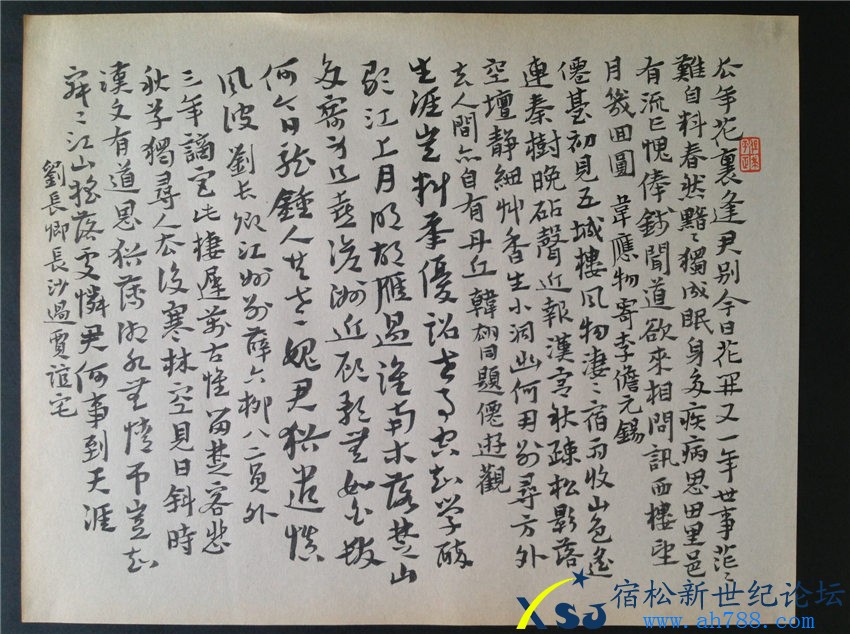 去年花裏逢君别今日花開又一年世事茫〻
難自料春愁黯〻獨成眠身多疾病思田里邑
有流亡愧俸錢聞道欲來相問訊西樓望
月幾回圓 韋應物寄李儋元錫
僊臺初見五城樓風物凄〻宿雨收山色遙
連秦樹晚砧聲近報漢宮秋疎松影落
空壇靜細艸香生小洞幽何用别尋方外
去人間亦自有丹丘 韓翃同題僊遊觀
生涯豈料承優詔世事空知學醉
歌江上月明胡雁過淮南木落楚山
多寄身且喜滄洲近顧影無如白髮
何今日龍鍾人共老媿君猶遣慎
風波 劉長卿江州别薛六柳八二員外
三年謫宦此棲遲萬古惟留楚客悲
秋草獨尋人去後寒林空見日斜時
漢文有道恩猶薄湘水無情弔豈知
寂〻江山搖落處憐君何事到天涯
劉長卿長沙過賈誼宅
XSJ 宿松新世纪论坛
www.ah788.com